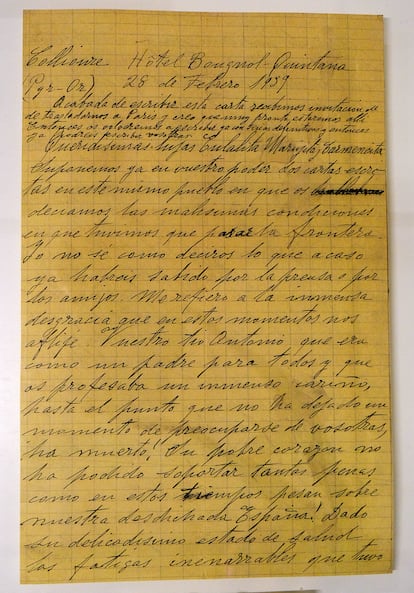 Collioure Hôtel Bougnol-Quintana
(Pyr-Or) 28 de Febrero 1939
Acabada de escribir esta carta recibimos invitación de
trasladarnos a Paris y creo que muy pronto estaremos allí
Entonces os volveremos a escribir ya dirección definitiva y entonces
ya podreis escribir vosotras
Queridisimas hijas Eulalita Mariquita Carmencita
Suponemos ya en vuestro poder dos cartas escri-
tas en este mismo pueblo en que os
deciamos las malisimas condiciones
en que tuvimos que pasar la frontera.
Yo no sé como deciros lo que acaso
ya habreis sabido por la prensa o por
los amigos. Me refiero a la inmensa
desgracia que en estos momentos nos
aflije. Vuestro tio Antonio que era
como un padre para todos y que
os profesaba un inmenso cariño,
hasta el punto que no ha dejado un
momento de preocuparse de vosotras,
ha muerto! Su pobre corazon no
ha podido soportar tantas penas
como en estos tiempos pesan sobre
nuestra desdichada España! Dado
su delicadisimo estado de salud
las fatigas inenarrables que tuvo